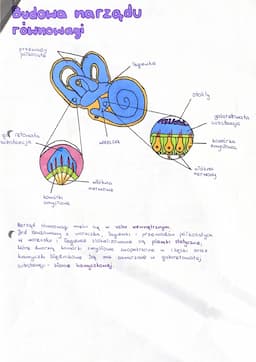 Budowa narządu
równowagi
przewody
półkoliste
łagiewka
otolity
galaretowata
substancja
komórka
zmysłowa
włókno
nerwowe
galaretowata
substancja
woreczek
włókna
nerwowe
komórki
zmysłowe
Narząd równowagi mieści się w uchu wewnętrznym.
Jest zbudowany z woreczka, łagiewki i przewodów półkolistych
W woreczku i łagiewce zlokalizowane są plamki statyczne,
które tworzą komórki zmysłowe zaopatrzone w rzęski oraz
komórki podporowe. Są one zanurzone w galaretowatej
substancji